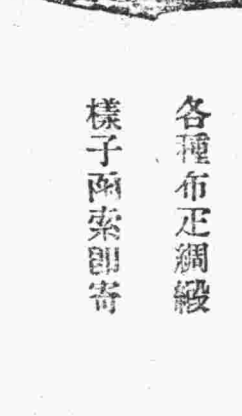 各種布疋綢緞
樣子函索即寄